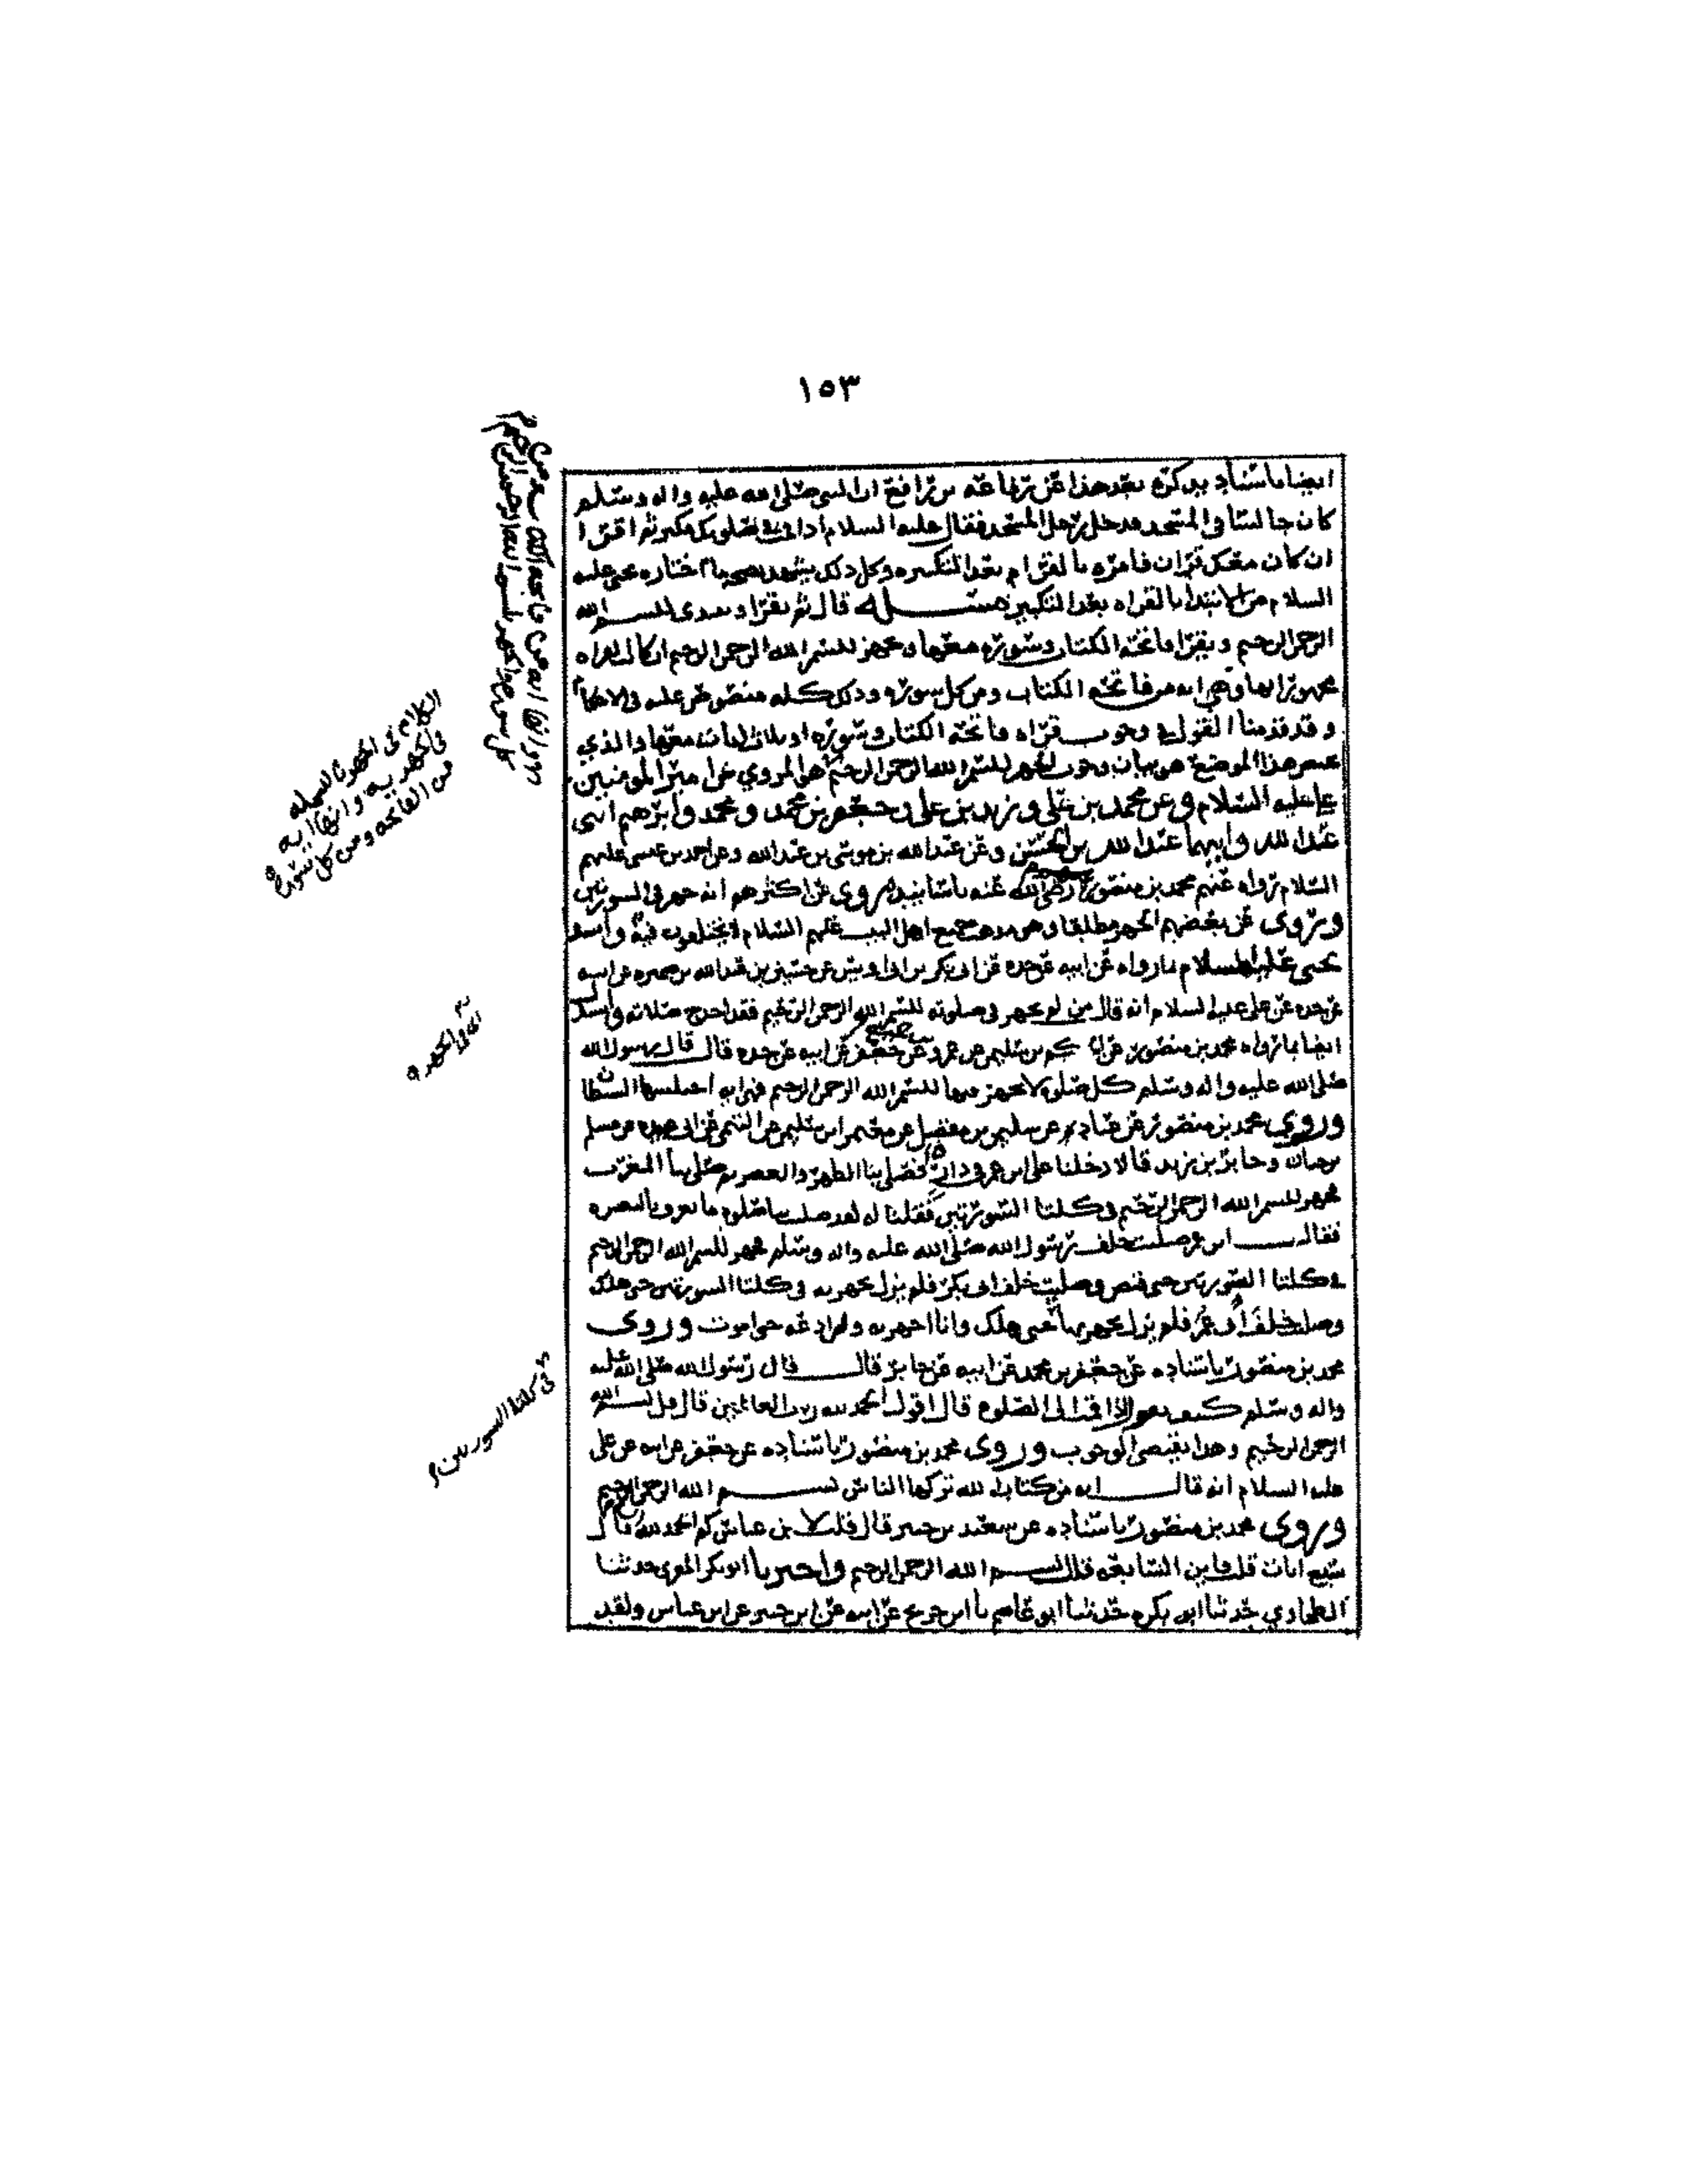 ١٥٣
ايضا باسناد يذكره بعد هذا عن رفاعه بن رافع ان النبي صلى الله عليه واله وسلم
كان جالسا في المسجد فدخل رجل المسجد فقال عليه السلام اذا فكبر ثم اقرا
ان كان معك قران فامره بالقرأة بعد التكبيره وكل ذلك يشهد بصحه ما اختاره يحيى عليه
السلام من الابتدا بالقراه بعد التكبير مسئله قال ثم يقرا ويبتدي ببسم الله
الرحمن الرحيم ويقرا فاتحة الكتاب وسورة معها ويجهر ببسم الله الرحمن الرحيم ان كانت القراه
مجهورا بها وهي ايه من فاتحه الكتاب ومن كل سوره وذلك كله منصوص عليه في الاحكام
وقد قدمنا القول في وجوب قراه فاتحة الكتاب وسوره او ثلاث ايات معها والذي
هذا الموضع هو بيان وجوب الجهر ببسم الله الرحمن الرحيم هو المروي عن امير المومنين
علي عليه السلام وعن محمد بن علي وزيد بن علي وجعفر بن محمد ومحمد وابرهيم ابني
عبد الله وابيهما عبد الله بن الحسن وعن عبد الله بن موسى بن عبد الله وعن احمد بن عيسى عليهم
السلام رواه عنهم محمد بن منصور رضي الله عنه باسانيده روى عن اكثرهم انه جهر في السورتين
وروى عن بعضهم الجهر مطلقا وهو مذهب جميع اهل البيت عليهم السلام لا يختلفون فيه واسند
يحيى عليه السلام بما رواه عن ابيه عن جده عن ابي بكر بن ابي اويس عن حسين بن عبد الله بن ضميره عن ابيه
عن جده عن علي عليه السلام انه قال من لم يجهر في صلوته ببسم الله الرحمن الرحيم فقد اخدج صلاته واستدل
ايضا بما رواه محمد بن منصور عن بن سليم عن عمرو عن جعفر عن ابيه عن جده قال قال رسول الله
صلى الله عليه واله وسلم كل صلوة لا يجهر فيها ببسم الله الرحمن الرحيم فهي ايه اختلسها الشيطان
وروى محمد بن منصور عن عباد عن سليمن بن مفضل عن معتمر بن سليمن عن التيمي عن ابي عن مسلم
بن حيان وجابر بن زيد قالا دخلنا على ابن عمر في داره فصلى بنا الظهر والعصر ثم صلى بنا المغرب
فجهر ببسم الله الرحمن الرحيم في كلتا السورتين فقلنا له لقد صليت بنا صلوة ما تعرف بالبصره
فقال ابن عمر صليت خلف رسول الله صلى الله عليه واله وسلم فجهر ببسم الله الرحمن الرحيم
في كلتا السورتين حتى قبض وصليت خلف ابي بكر فلم يزل يجهر به في كلتا السورتين حتى هلك
وصليت خلف عمر فلم يزل يجهر بها حتى هلك وانا اجهر به ولم ادعه حتى اموت وروى
محمد بن منصور باسناده عن جعفر بن محمد عن ابيه عن جابر قال قال رسول الله صلى الله عليه
واله وسلم كيف تقول اذا قمت الى الصلوة قال اقول الحمد لله رب العالمين قال قل بسم الله
الرحمن الرحيم وهذا يقتضي الوجوب وروى محمد بن منصور باسناده عن جعفر عن ابيه عن علي
عليه السلام انه قال ايه من كتاب الله تركها الناس بسم الله الرحمن الرحيم
وروى محمد بن منصور باسناده عن سعيد بن جبير قال قلت لابن عباس كم الحمد لله قال
سبع ايات قلت فاين السابعه قال بسم الله الرحمن الرحيم واخبرنا ابو بكر المقري حدثنا
الطحاوي حدثنا ابو بكره حدثنا ابو عاصم نا ابن جريج عن ابيه عن ابن جبير عن ابن عباس ولقد
الكلام في الجهر بالبسمله
في الجهر به وانها ايه
من الفاتحه ومن كل سوره
في كلتا السورتين